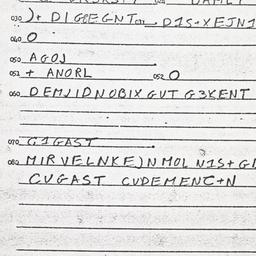 030 )+ DIGEEGNT D1S+XEJN1
040 O
050 AGOJ
051 + ANORL 052 O
060 DEMJIDNOBIX GUT G3KENT
070 G1GAST
080 MIRVELNKE)N MOL N1S+GI
CUGAST CUDEMENC+N